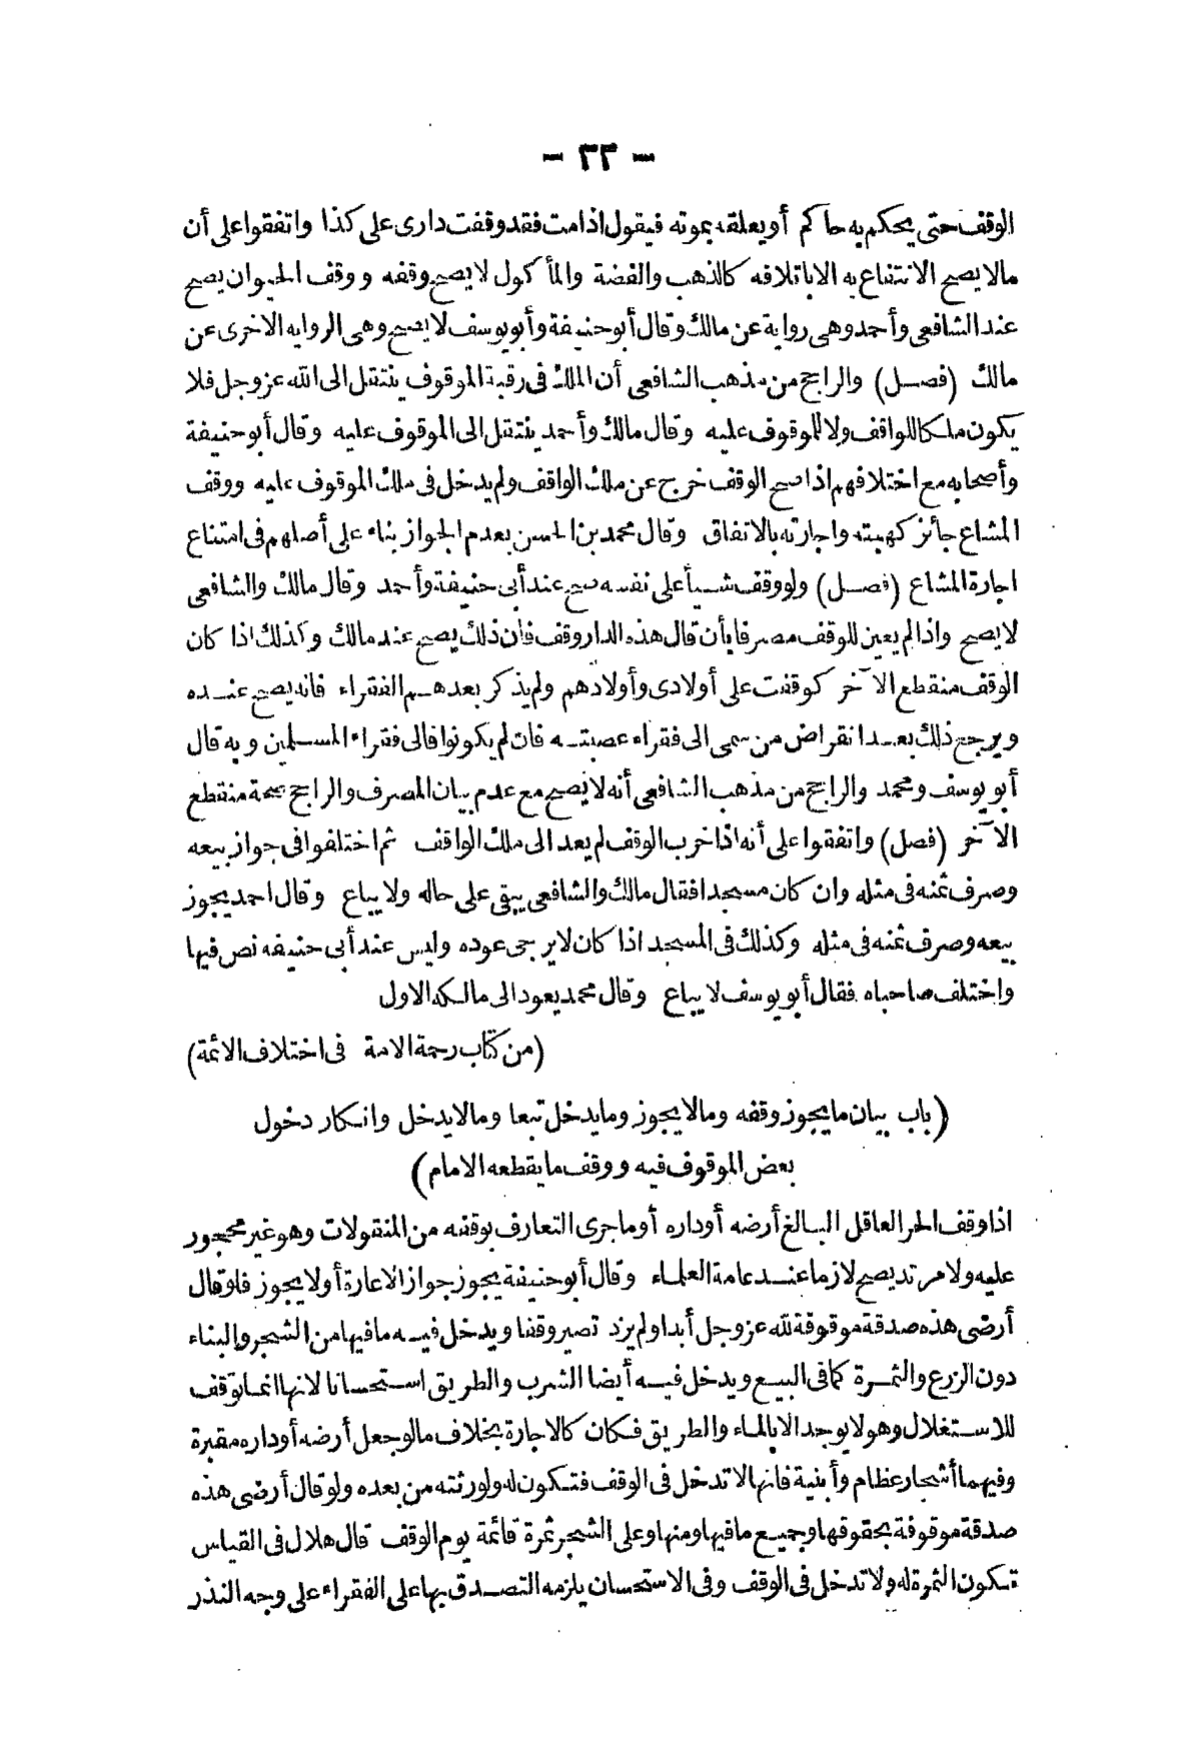 - ٣٣ -
الوقف حتى يحكم به حاكم أو يعلقه بموته فيقول اذامت فقد وقفت دارى على كذا واتفقوا على أن
مالا يصح الانتفاع به الا باتلافه كالذهب والفضة والمأكول لا يصح وقفه ووقف الحيوان يصح
عند الشافعى وأحمد وهى رواية عن مالك وقال أبو حنيفة وأبو يوسف لا يصح وهى الرواية الاخرى عن
مالك (فصل) والراجح من مذهب الشافعى أن الملك فى رقبة الموقوف ينتقل الى الله عز وجل فلا
يكون ملكا للواقف ولا للموقوف عليه وقال مالك وأحمد ينتقل الى الموقوف عليه وقال أبو حنيفة
وأصحابه مع اختلافهم اذا صح الوقف خرج عن ملك الواقف ولم يدخل فى ملك الموقوف عليه ووقف
المشاع جائز كهبته واجارته بالاتفاق وقال محمد بن الحسن بعدم الجواز بناء على أصلهم فى امتناع
اجارة المشاع (فصل) ولو وقف شيأ على نفسه صح عند أبى حنيفة وأحمد وقال مالك والشافعى
لا يصح واذا لم يعين للوقف مصرفا بأن قال هذه الدار وقف فان ذلك يصح عند مالك وكذلك اذا كان
الوقف منقطع الآخر كوقفت على أولادى وأولادهم ولم يذكر بعدهم الفقراء فانه يصح عنده
ويرجع ذلك بعد انقراض من سمى الى فقراء عصبته فان لم يكونوا فالى فقراء المسلمين وبه قال
أبو يوسف ومحمد والراجح من مذهب الشافعى أنه لا يصح مع عدم بيان المصرف والراجح صحة منقطع
الآخر (فصل) واتفقوا على أنه اذا خرب الوقف لم يعد الى ملك الواقف ثم اختلفوا فى جواز بيعه
وصرف ثمنه فى مثله وان كان مسجدا فقال مالك والشافعى يبقى على حاله ولا يباع وقال احمد يجوز
بيعه وصرف ثمنه فى مثله وكذلك فى المسجد اذا كان لا يرجى عوده وليس عند أبى حنيفة نص فيها
واختلف صاحباه فقال أبو يوسف لا يباع وقال محمد يعود الى مالكه الاول
(من كتاب رحمة الامة فى اختلاف الائمة)
(باب بيان ما يجوز وقفه ومالا يجوز وما يدخل تبعا ومالا يدخل وانكار دخول
بعض الموقوف فيه ووقف ما يقطعه الامام)
اذا وقف الحر العاقل البالغ أرضه أوداره أو ما جرى التعارف بوقفه من المنقولات وهو غير محجور
عليه ولا مرتد يصح لازما عند عامة العلماء وقال أبو حنيفة يجوز جواز الاعارة أو لا يجوز فلو قال
أرضى هذه صدقة موقوفة لله عز وجل أبدا ولم يزد تصير وقفا ويدخل فيه ما فيها من الشجر والبناء
دون الزرع والثمرة كما فى البيع ويدخل فيه أيضا الشرب والطريق استحسانا لانها انما توقف
للاستغلال وهو لا يوجد الا بالماء والطريق فكان كالاجارة بخلاف مالو جعل أرضه أو داره مقبرة
وفيهما أشجار عظام وأبنية فانها لا تدخل فى الوقف فتكون له ولورثته من بعده ولو قال أرضى هذه
صدقة موقوفة بحقوقها وجميع ما فيها ومنها وعلى الشجر ثمرة قائمة يوم الوقف قال هلال فى القياس
تكون الثمرة له ولا تدخل فى الوقف وفى الاستحسان يلزمه التصدق بها على الفقراء على وجه النذر